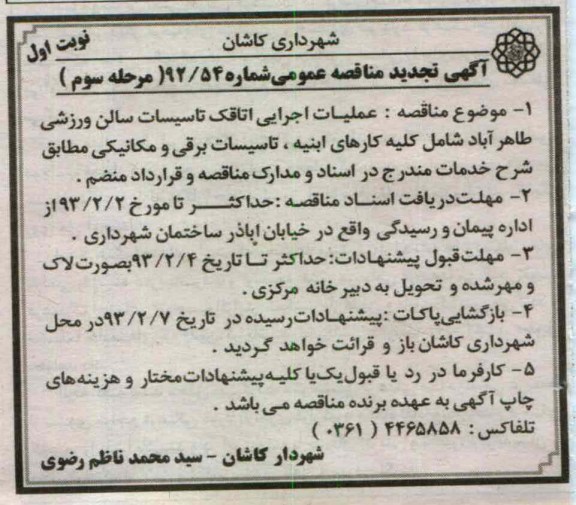 شهرداری کاشان
نوبت اول
آگهی تجدید مناقصه عمومی شماره ۹۲/۵۴( مرحله سوم )
۱- موضوع مناقصه : عملیات اجرایی اتاقک تاسیسات سالن ورزشی
طاهر آباد شامل کلیه کارهای ابنیه ، تاسیسات برقی و مکانیکی مطابق
شرح خدمات مندرج در اسناد و مدارک مناقصه و قرارداد منضم .
۲- مهلت دریافت اسناد مناقصه :حداکثر تا مورخ ۹۳/۲/۲ از
اداره پیمان و رسیدگی واقع در خیابان اباذر ساختمان شهرداری .
۳- مهلت قبول پیشنهادات: حداکثر تا تاریخ ۹۳/۲/۴ بصورت لاک
و مهر شده و تحویل به دبیر خانه مرکزی .
۴- بازگشایی پاکات :پیشنهادات رسیده در تاریخ ۹۳/۲/۷ در محل
شهرداری کاشان باز و قرائت خواهد گردید .
۵- کارفرما در رد یا قبول یک یا کلیه پیشنهادات مختار و هزینه های
چاپ آگهی به عهده برنده مناقصه می باشد .
تلفاکس : ۴۴۶۵۸۵۸ ( ۰۳۶۱ )
شهردار کاشان - سید محمد ناظم رضوی